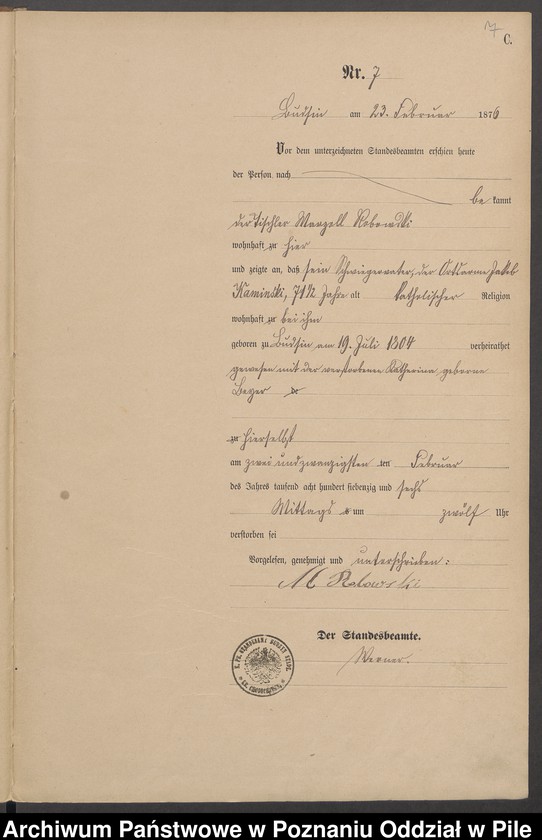 7
C.
Nr. 7
Budsin am 23. Februar 1876
Vor dem unterzeichneten Standesbeamten erschien heute
der Person nach
be kannt
der Tischler Marzell
wohnhaft zu hier
und zeigte an, daß sein Schwiegervater, der Ortsarme Jakob
Kaminski, 71½ Jahre alt katholischer Religion
wohnhaft zu bei ihm
geboren zu Budsin am 19. Juli 1804 verheirathet
gewesen mit der verstorbenen Katherina geborne
Beyer
zu hierselbst
am zwei und zwanzigsten ten Februar
des Jahres tausend acht hundert siebenzig und sechs
Mittags um zwölf Uhr
verstorben sei
Vorgelesen, genehmigt und unterschrieben:
M
Der Standesbeamte.
Werner.
Archiwum Państwowe w Poznaniu Oddział w Pile